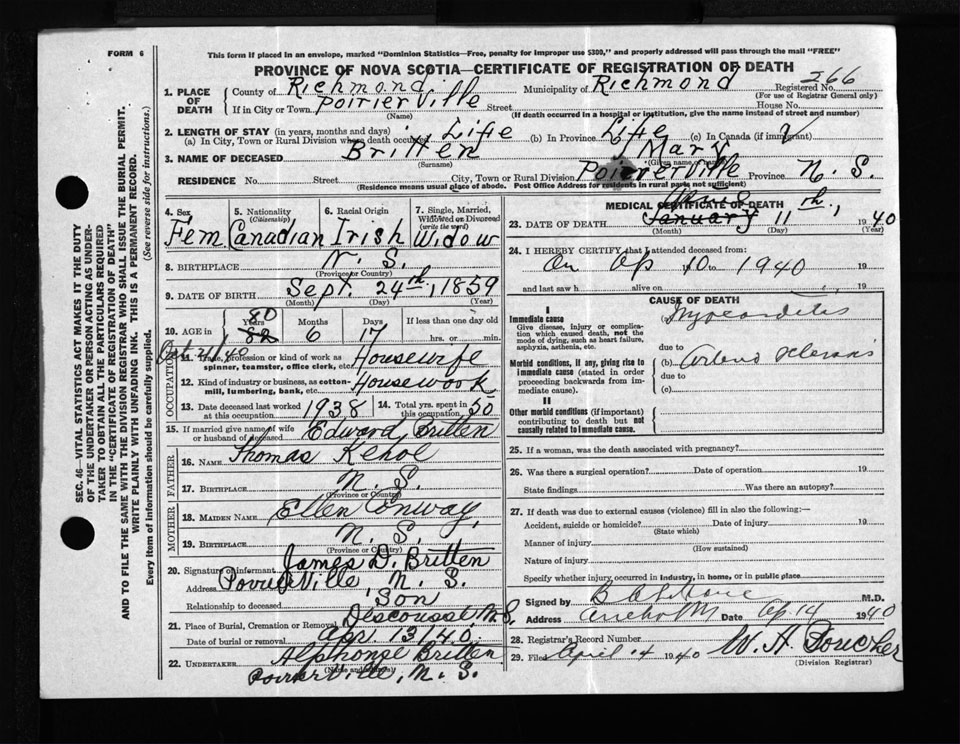 FORM 6
This form if placed in an envelope, marked "Dominion Statistics—Free, penalty for improper use $300," and properly addressed will pass through the mail "FREE"
PROVINCE OF NOVA SCOTIA—CERTIFICATE OF REGISTRATION OF DEATH
1. PLACE OF DEATH County of Richmond Municipality of Richmond Registered No. 266
(For use of Registrar General only)
If in City or Town Poirierville Street House No.
(Name) (If death occurred in a hospital or institution, give the name instead of street and number)
2. LENGTH OF STAY (in years, months and days)
(a) In City, Town or Rural Division where death occurred Life (b) In Province Life (c) In Canada (if immigrant)
3. NAME OF DECEASED Britten Mary
(Surname) (Given name or names)
RESIDENCE No. Street City, Town or Rural Division Poirierville Province N. S.
(Residence means usual place of abode. Post Office Address for residents in rural parts not sufficient)
4. Sex Fem.
5. Nationality (Citizenship) Canadian
6. Racial Origin Irish
7. Single, Married, Widowed or Divorced (write the word) Widow
8. BIRTHPLACE N. S.
(Province or Country)
9. DATE OF BIRTH Sept. 24th, 1859
(Month) (Day) (Year)
10. AGE in Years 80 82 Months 6 Days 17 If less than one day old hrs. or min.
OCCUPATION
11. Trade, profession or kind of work as spinner, teamster, office clerk, etc. Housewife
12. Kind of industry or business, as cotton-mill, lumbering, bank, etc. Housework
13. Date deceased last worked at this occupation 1938 14. Total yrs. spent in this occupation 50
15. If married give name of wife or husband of deceased Edward Britten
FATHER
16. NAME Thomas Kehoe
17. BIRTHPLACE N. S.
(Province or Country)
MOTHER
18. MAIDEN NAME Ellen Conway,
19. BIRTHPLACE N. S.
(Province or Country)
20. Signature of informant James D. Britten
Address Poirierville N. S.
Relationship to deceased Son
21. Place of Burial, Cremation or Removal Descousse, N.S.
Date of burial or removal Apr. 13/40
22. UNDERTAKER Alphonse Britten
(Name and address)
Poirierville, N. S.
MEDICAL CERTIFICATE OF DEATH
23. DATE OF DEATH January 11th, 1940
(Month) (Day) (Year)
24. I HEREBY CERTIFY that I attended deceased from:
On Ap 10 to 1940 19
and last saw h alive on 19
CAUSE OF DEATH
I
Immediate cause
Give disease, injury or complication which caused death, not the mode of dying, such as heart failure, asphyxia, asthenia, etc.
Myocarditis
due to
Morbid conditions, if any, giving rise to immediate cause (stated in order proceeding backwards from immediate cause).
(b) Arterio Sclerosis
due to
(c)
II
Other morbid conditions (if important) contributing to death but not causally related to immediate cause.
25. If a woman, was the death associated with pregnancy?
26. Was there a surgical operation? Date of operation 19
State findings Was there an autopsy?
27. If death was due to external causes (violence) fill in also the following:—
Accident, suicide or homicide? Date of injury 19
(State which)
Manner of injury
(How sustained)
Nature of injury
Specify whether injury occurred in industry, in home, or in public place
Signed by M.D.
Address Date Ap 14 1940
28. Registrar's Record Number
29. Filed April 14 1940 W. A. Poucher
(Division Registrar)
SEC. 46—VITAL STATISTICS ACT MAKES IT THE DUTY
OF THE UNDERTAKER OR PERSON ACTING AS UNDER-
TAKER TO OBTAIN ALL THE PARTICULARS REQUIRED
IN THE "CERTIFICATE OF REGISTRATION OF DEATH"
AND TO FILE THE SAME WITH THE DIVISION REGISTRAR WHO SHALL ISSUE THE BURIAL PERMIT.
WRITE PLAINLY WITH UNFADING INK. THIS IS A PERMANENT RECORD.
Every item of information should be carefully supplied. (See reverse side for instructions.)